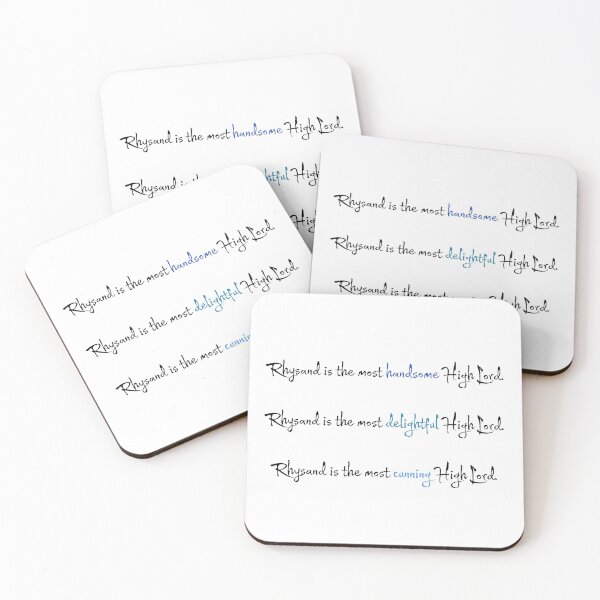 Rhysand is the most handsome High Lord.
Rhysand is the High
Rhysand is the most handsome High Lord.
Rhysand is the most delightful High Lord.
Rhysand is the most High Lord.
Rhysand is the most handsome High Lord.
Rhysand is the most delightful High Lord.
Rhysand is the most
Rhysand is the most handsome High Lord.
Rhysand is the most delightful High Lord.
Rhysand is the most cunning High Lord.